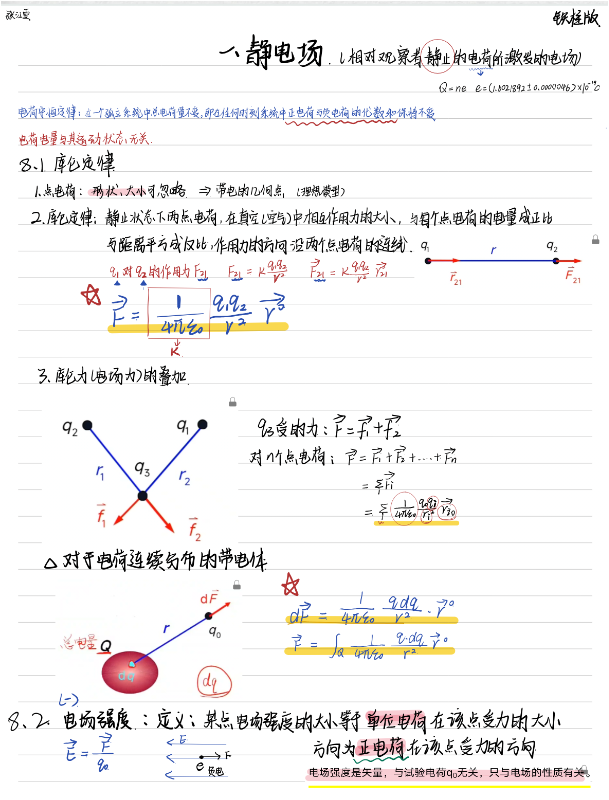 张江雪
铁柱版
一、静电场.(相对观察者静止的电荷所激发的电场)
Q=ne e=(1.6021892±0.0000046)×10⁻¹⁹C
电荷守恒定律:在一个孤立系统中总电荷量不变,即在任何时刻系统中正电荷与负电荷的代数和保持不变
电荷电量与其运动状态无关.
8.1 库仑定律
1.点电荷: 形状、大小可忽略 ⇒ 带电的几何点 (理想模型)
2.库仑定律: 静止状态下两点电荷,在真空(空气)中相互作用力的大小,与每个点电荷的电量成正比
与距离平方成反比,作用力的方向沿两个点电荷的连线.
q₁ r q₂
r⃗₂₁ F⃗₂₁
q₁对q₂的作用力F₂₁ F₂₁=K q₁q₂/r² F⃗₂₁=K q₁q₂/r² r⃗₂₁
☆ F⃗= 1/4πε₀ q₁q₂/r² r⃗⁰
K
3.库仑力(电场力)的叠加
q₂ q₁
q₃
r₁ r₂
f⃗₁ f⃗₂
q₃受的力: F⃗=F⃗₁+F⃗₂
对n个点电荷: F⃗=F⃗₁+F⃗₂+...+F⃗n
=Σ F⃗i
=Σ 1/4πε₀ q₀qi/ri² r⃗i₀
△ 对于电荷连续分布的带电体
dF⃗
r q₀
总电量 Q
dq
dq
☆ dF⃗= 1/4πε₀ q dq/r² · r⃗⁰
F⃗= ∫Q 1/4πε₀ q·dq/r² r⃗⁰
(一)
8.2 电场强度:定义:某点电场强度的大小等于单位电荷在该点受力的大小
方向为正电荷在该点受力的方向
E⃗= F⃗/q₀
E
e F
负电
电场强度是矢量,与试验电荷q₀无关,只与电场的性质有关。